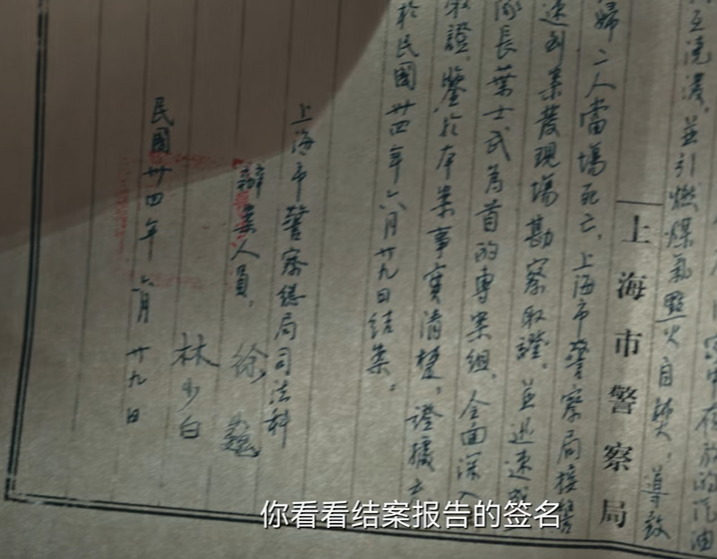 互澆潑，並引燃煤氣點火自焚，導致
上海市警察局
婦二人當場死亡，上海市警察局接警
速到案發現場勘察取證，並迅速
隊長葉士武為首的專案組，全面深入
取證，鑒於本案事實清楚，證據
於民國卅四年六月廿九日結案。
上海市警察總局司法科
辦案人員：徐
林少白
民國卅四年六月廿九日
你看看结案报告的签名